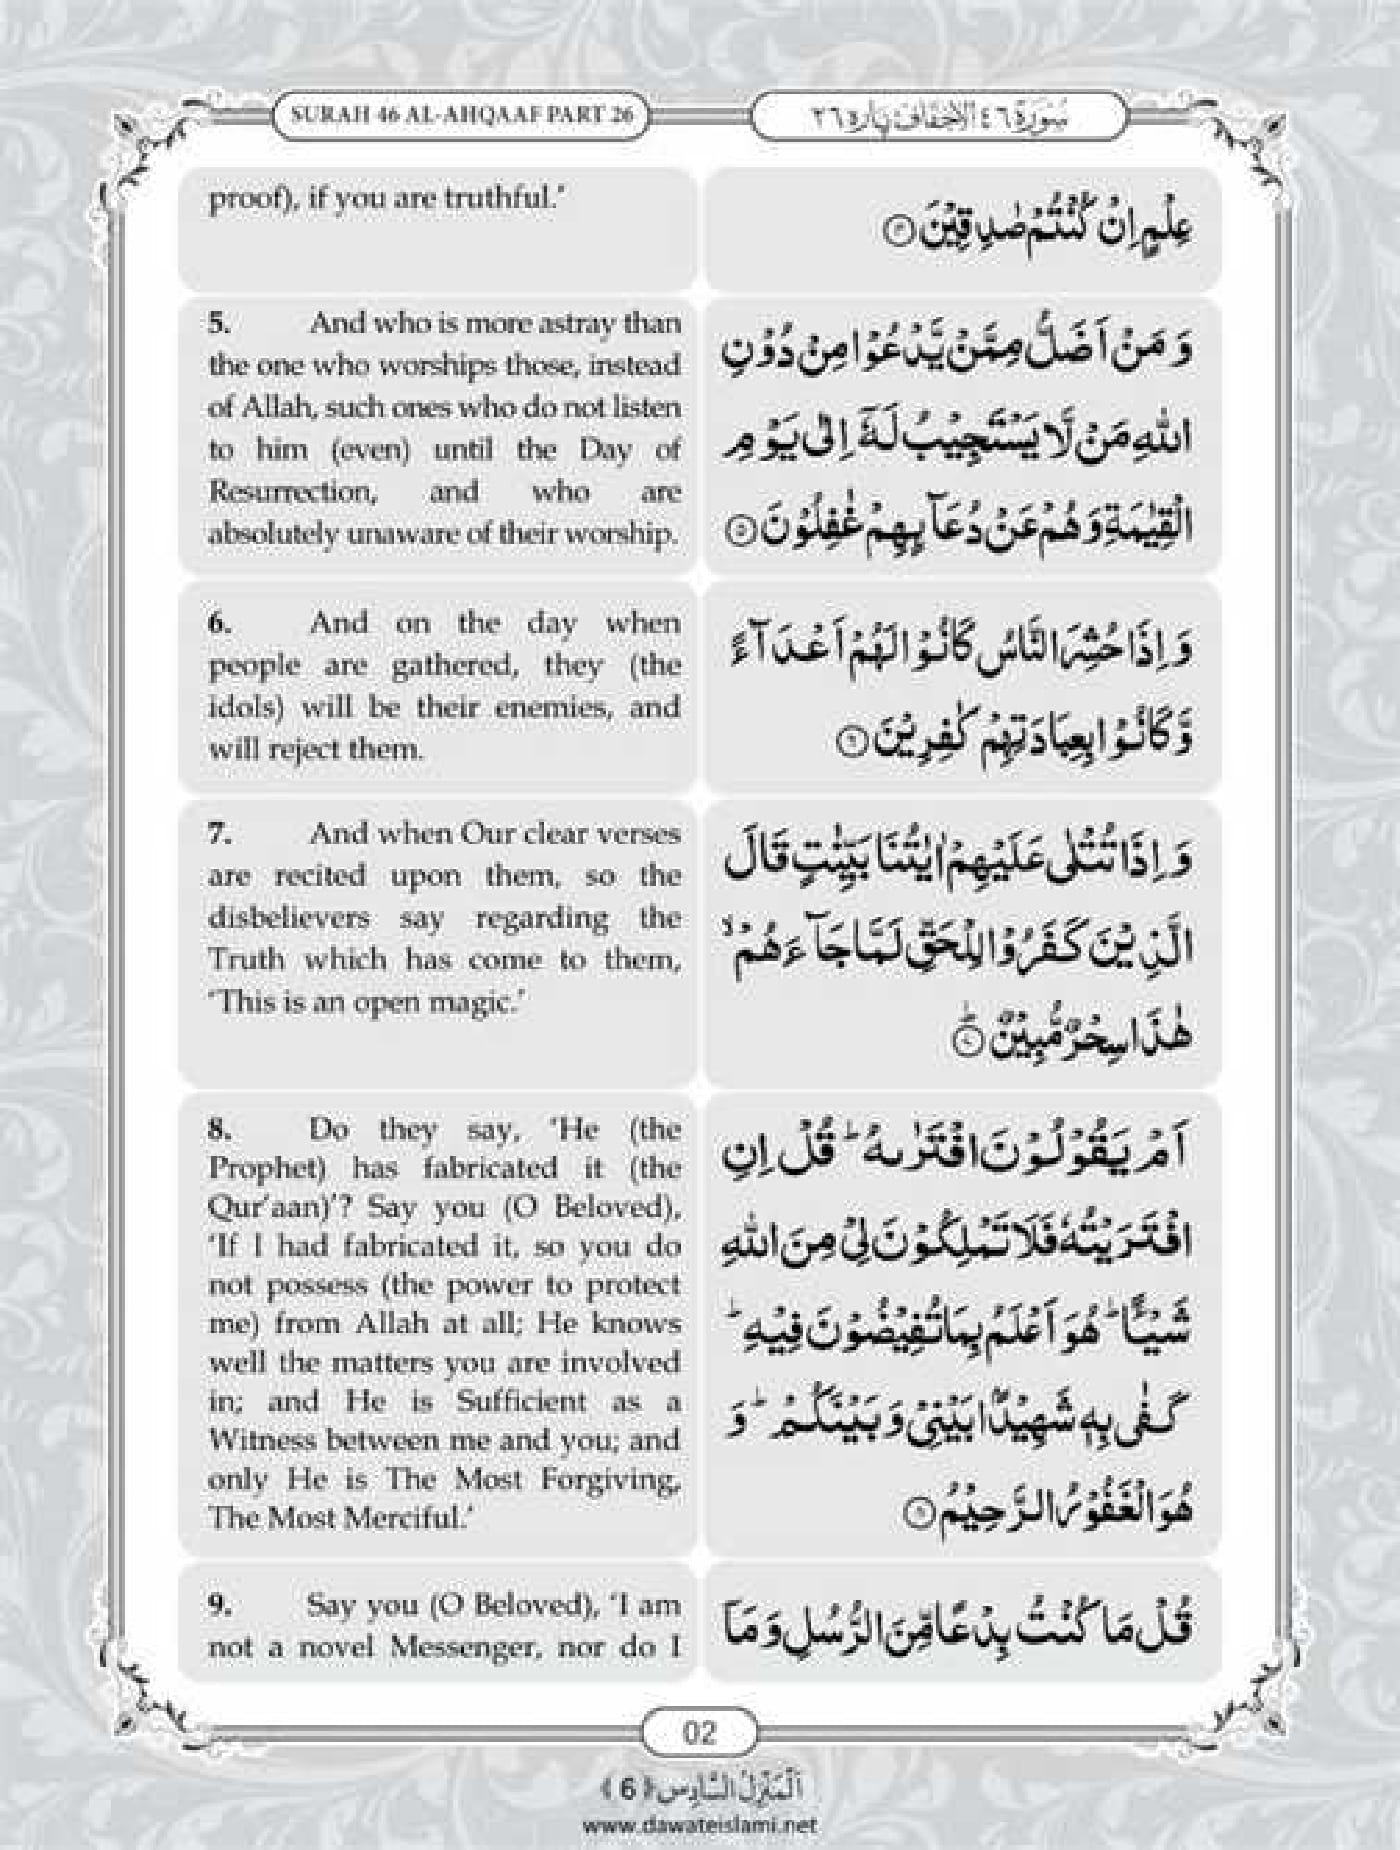 SURAH 46 AL-AHQAAF PART 26
سُوْرَة ٤٦ الاحقاف پاره ٢٦
proof), if you are truthful.’
عِلْمٍ اِنْ كُنْتُمْ صٰدِقِیْنَ ﴿۴﴾
5. And who is more astray than
the one who worships those, instead
of Allah, such ones who do not listen
to him (even) until the Day of
Resurrection, and who are
absolutely unaware of their worship.
وَ مَنْ اَضَلُّ مِمَّنْ یَّدْعُوْا مِنْ دُوْنِ
اللّٰهِ مَنْ لَّا یَسْتَجِیْبُ لَهٗۤ اِلٰی یَوْمِ
الْقِیٰمَةِ وَ هُمْ عَنْ دُعَآىِٕهِمْ غٰفِلُوْنَ ﴿۵﴾
6. And on the day when
people are gathered, they (the
idols) will be their enemies, and
will reject them.
وَ اِذَا حُشِرَ النَّاسُ كَانُوْا لَهُمْ اَعْدَآءً
وَّ كَانُوْا بِعِبَادَتِهِمْ كٰفِرِیْنَ ﴿۶﴾
7. And when Our clear verses
are recited upon them, so the
disbelievers say regarding the
Truth which has come to them,
‘This is an open magic.’
وَ اِذَا تُتْلٰی عَلَیْهِمْ اٰیٰتُنَا بَیِّنٰتٍ قَالَ
الَّذِیْنَ كَفَرُوْا لِلْحَقِّ لَمَّا جَآءَهُمْ ۙ
هٰذَا سِحْرٌ مُّبِیْنٌ ﴿ؕ۷﴾
8. Do they say, ‘He (the
Prophet) has fabricated it (the
Qur’aan)’? Say you (O Beloved),
‘If I had fabricated it, so you do
not possess (the power to protect
me) from Allah at all; He knows
well the matters you are involved
in; and He is Sufficient as a
Witness between me and you; and
only He is The Most Forgiving,
The Most Merciful.’
اَمْ یَقُوْلُوْنَ افْتَرٰىهُ ؕ قُلْ اِنِ
افْتَرَیْتُهٗ فَلَا تَمْلِكُوْنَ لِیْ مِنَ اللّٰهِ
شَیْـًٔا ؕ هُوَ اَعْلَمُ بِمَا تُفِیْضُوْنَ فِیْهِ ؕ
كَفٰی بِهٖ شَهِیْدًۢا بَیْنِیْ وَ بَیْنَكُمْ ؕ وَ
هُوَ الْغَفُوْرُ الرَّحِیْمُ ﴿۸﴾
9. Say you (O Beloved), ‘I am
not a novel Messenger, nor do I
قُلْ مَا كُنْتُ بِدْعًا مِّنَ الرُّسُلِ وَ مَاۤ
02
اَلْمَنْزِلُ السَّادِس ﴿6﴾
www.dawateislami.net